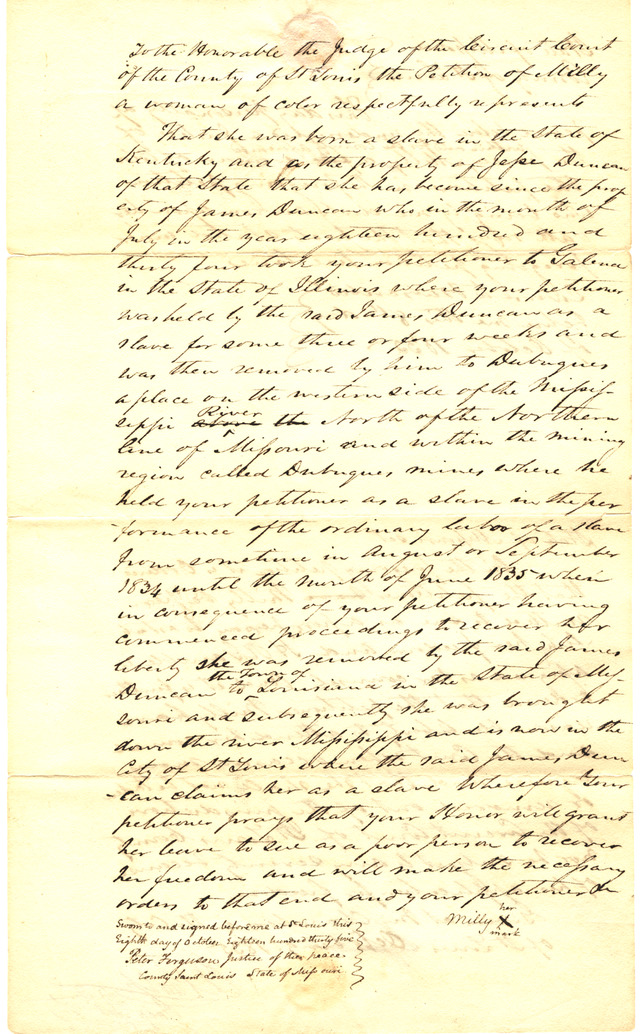 To the Honorable the Judge of the Circuit Court
of the County of St Louis the Petition of Milly
a woman of color respectfully represents
That she was born a slave in the State of
Kentucky and as the property of Jesse Duncan
of that State that she has become since the prop
erty of James Duncan who in the month of
July in the year eighteen hundred and
thirty four took your petitioner to Galena
in the State of Illinois where your petitioner
was held by the said James Duncan as a
slave for some three or four weeks and
was then removed by him to Dubuques
a place on the western side of the Missis-
sippi above the River North of the Northern
line of Missouri and within the mining
region called Dubuques mines where he
held your petitioner as a slave in the per
-formance of the ordinary labor of a slave
from sometime in August or September
1834 until the month of June 1835 when
in consequence of your petitioner having
commenced proceedings to recover her
liberty she was removed by the said James
Duncan to the Town of Louisiana in the State of Mis-
souri and subsequently she was brought
down the river Mississippi and is now in the
City of St Louis where the said James Dun
-can claims her as a slave Wherefore your
petitioner prays that your Honor will grant
her leave to sue as a poor person to recover
her freedom and will make the necessary
orders to that end and your petitioner &c
Milly her X mark
Sworn to and signed before me at St Louis this
Eighth day of October Eighteen hundred thirty five
Peter Ferguson, Justice of the peace.
County Saint Louis State of Missouri